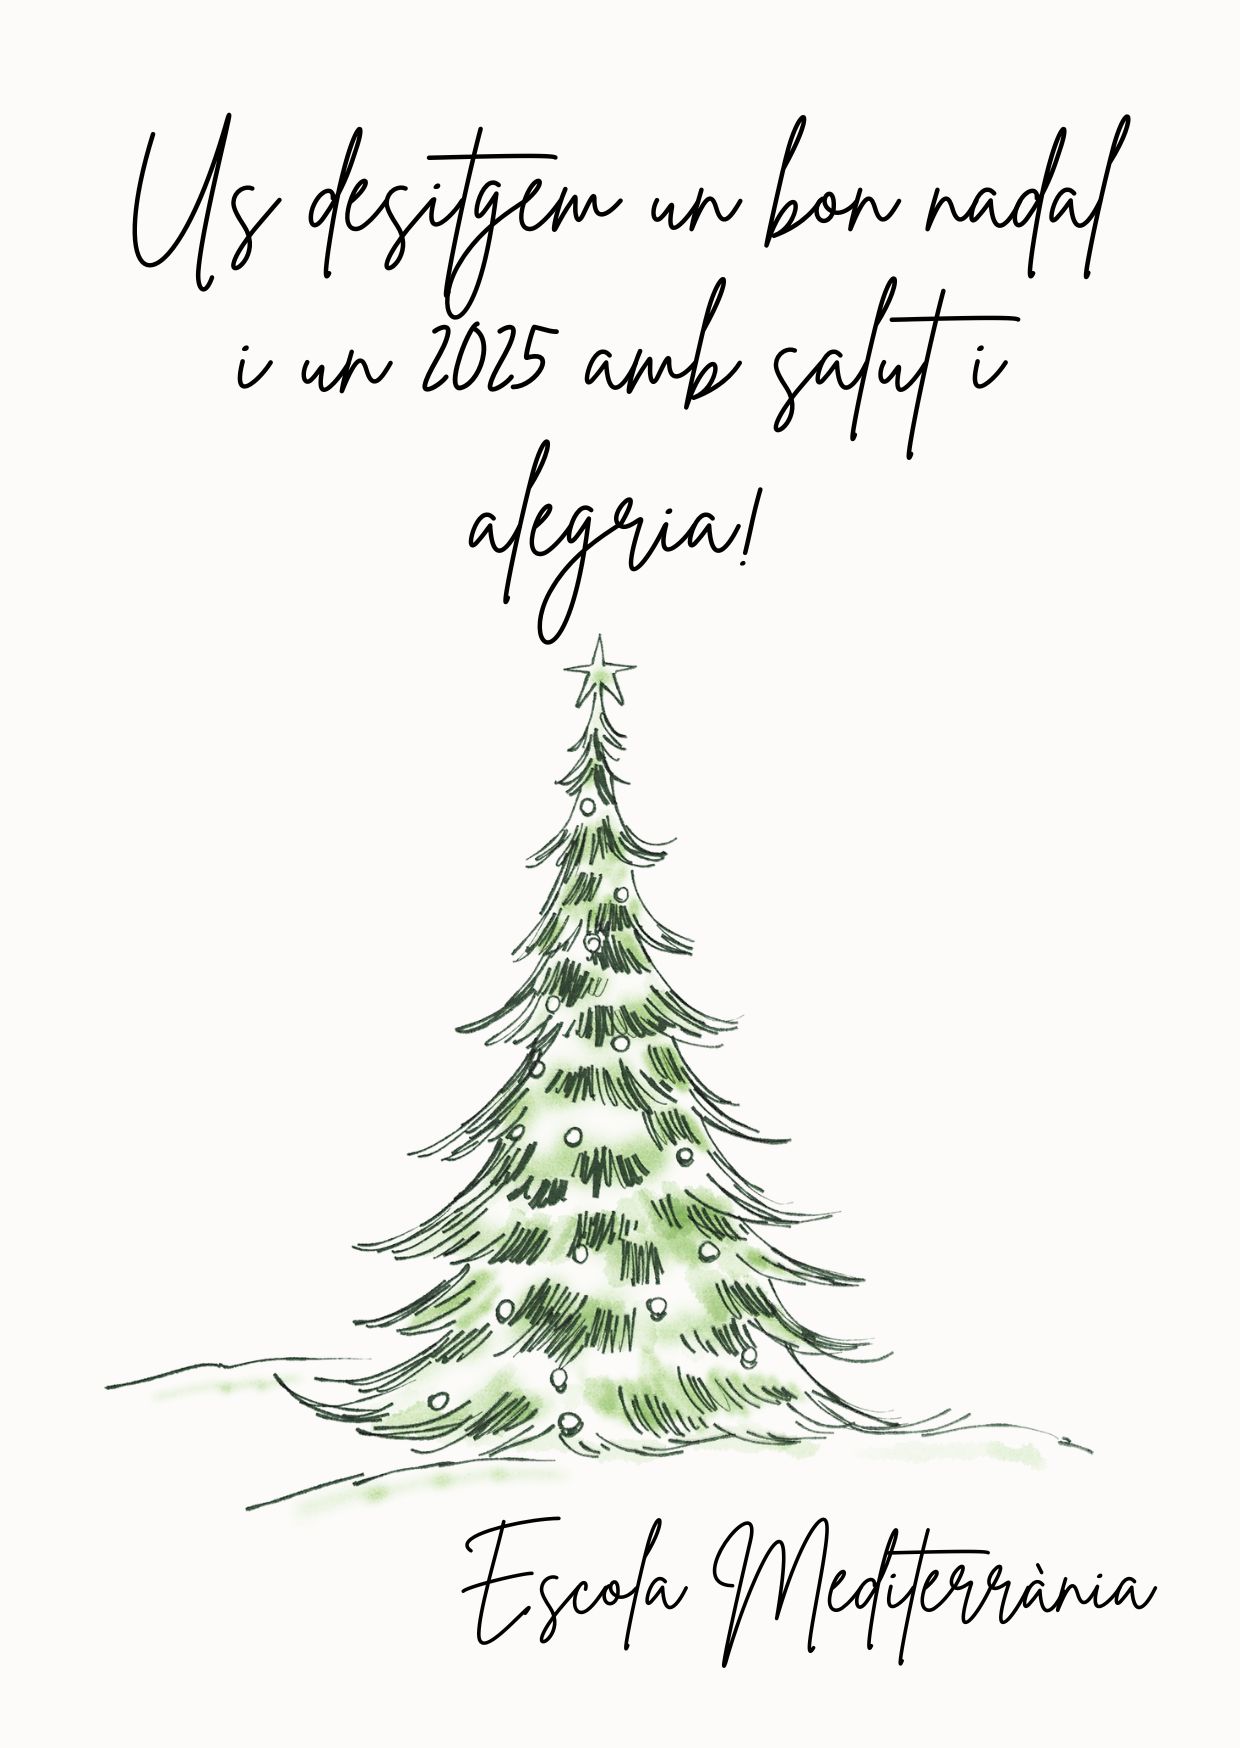 Us desitgem un bon nadal
i un 2025 amb salut i
alegria!
Escola Mediterrània